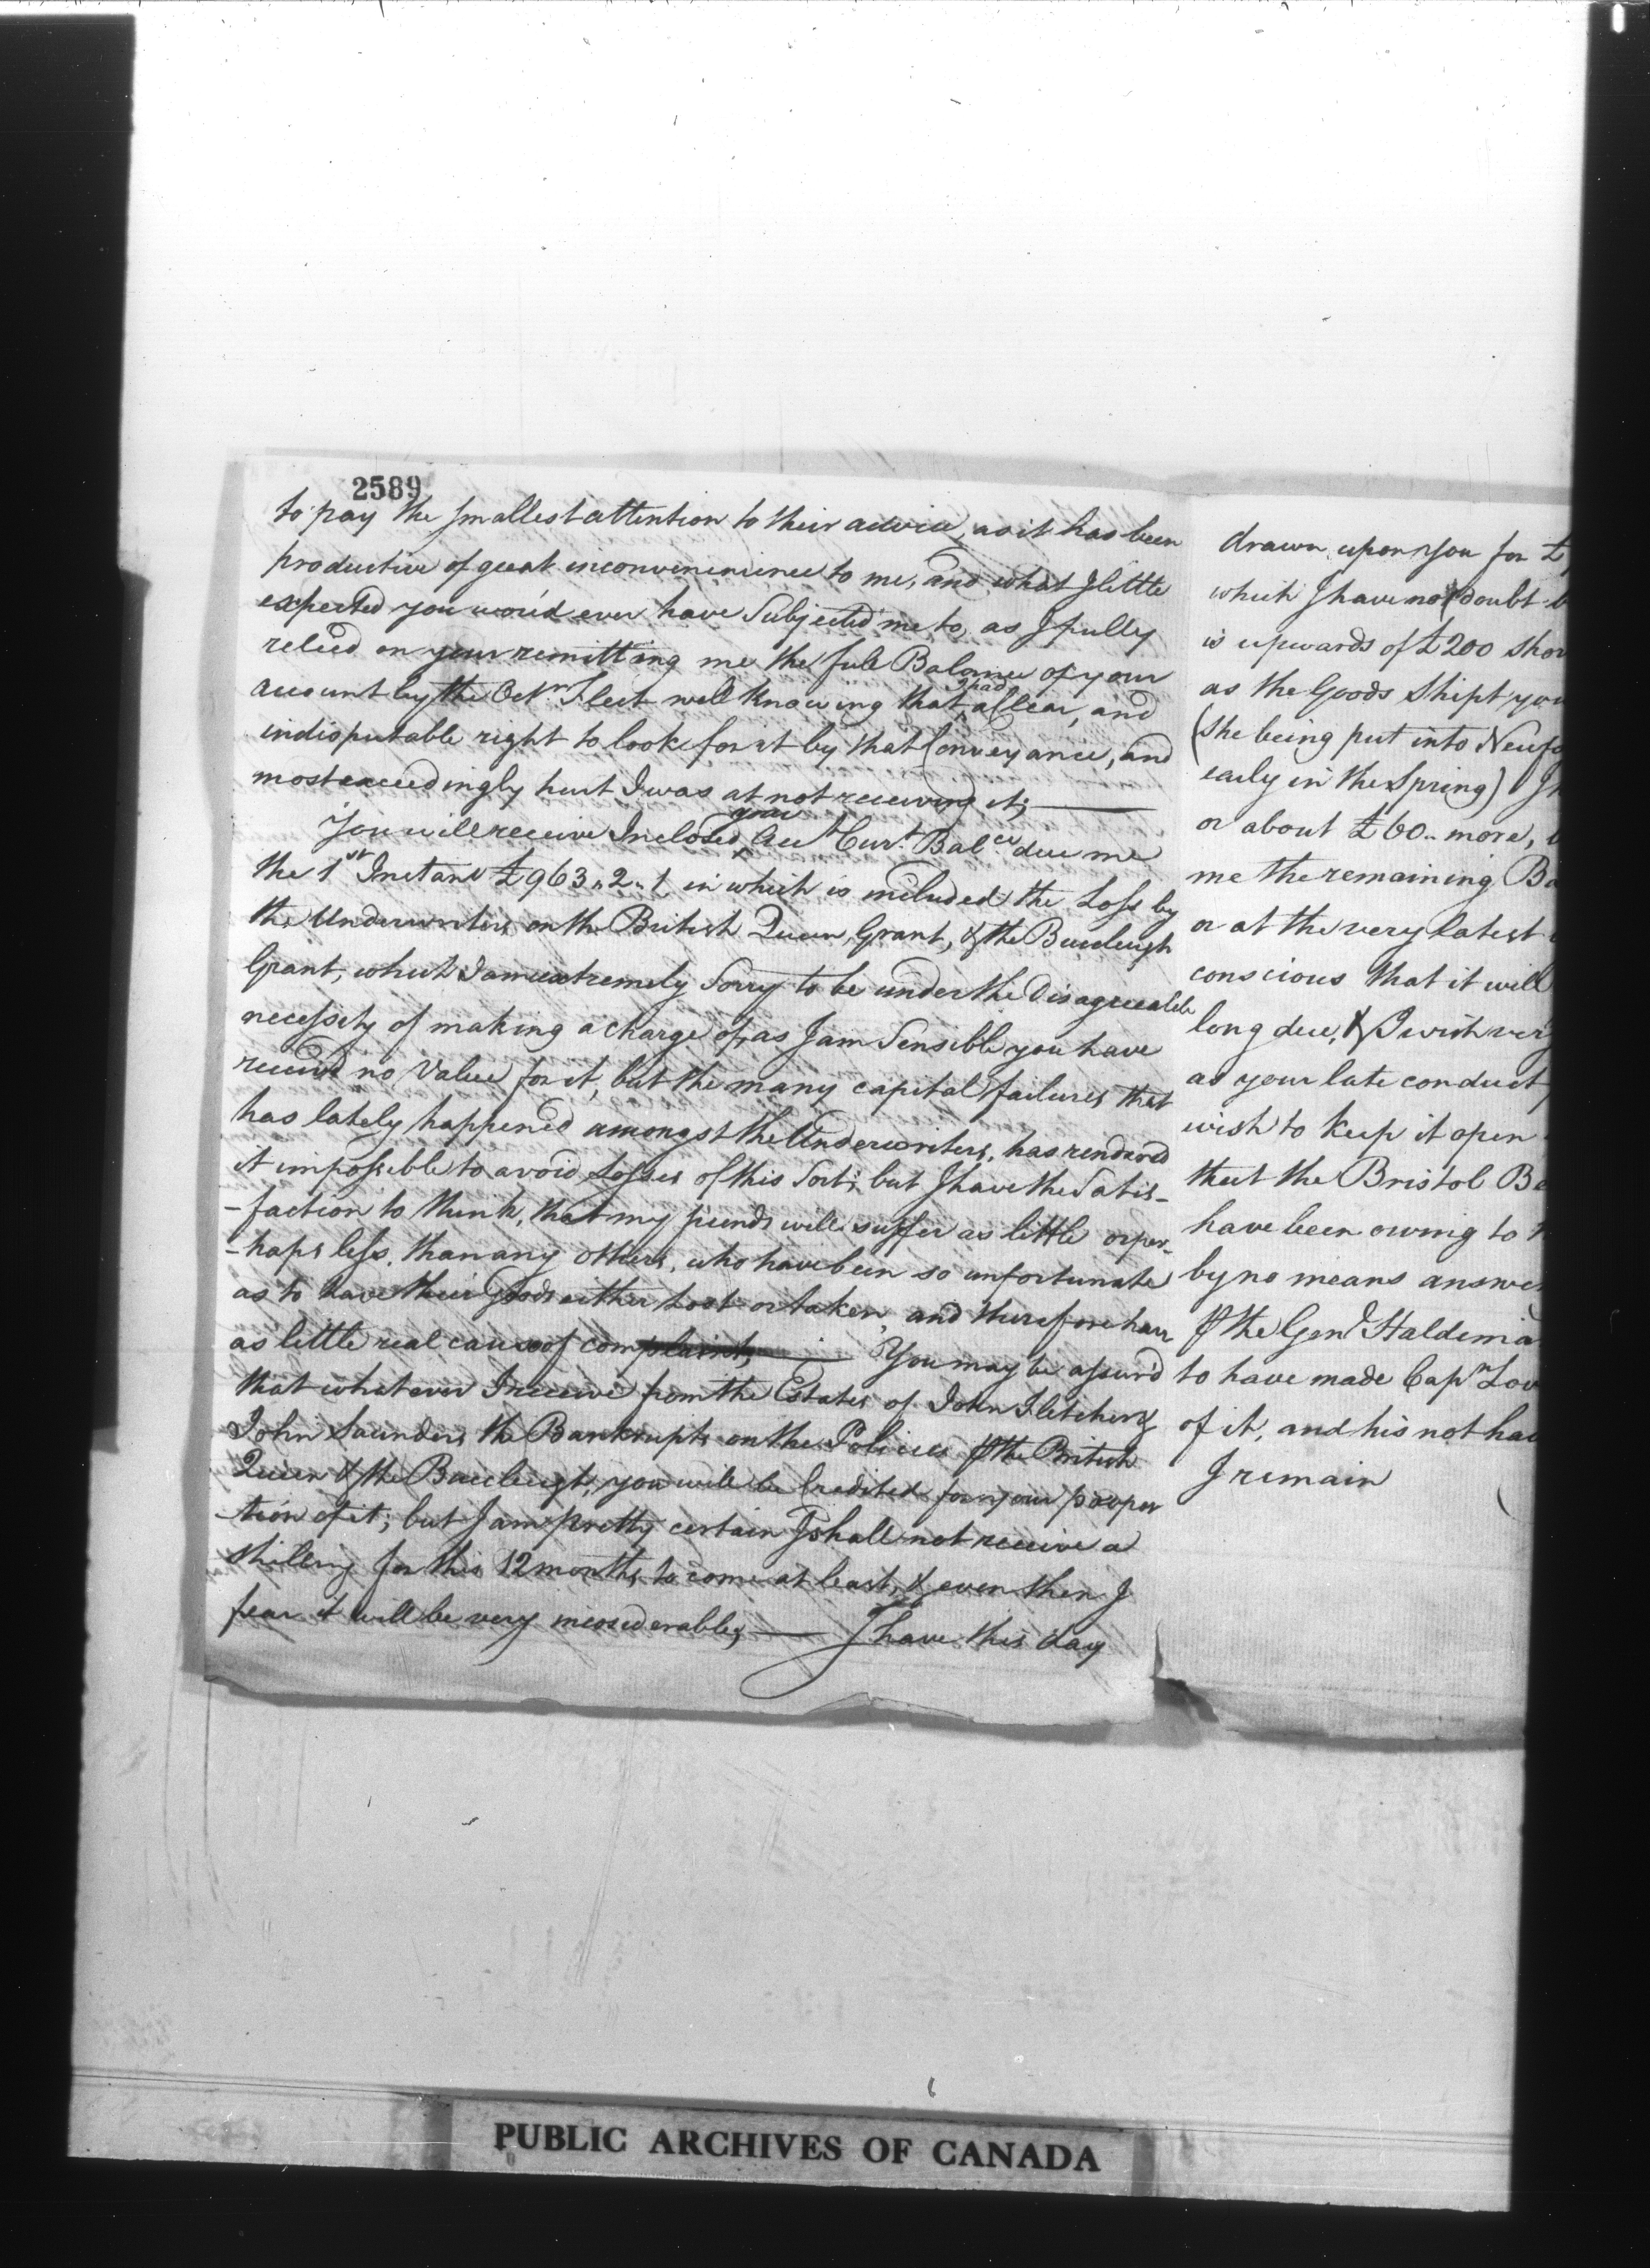 2589
to pay the smallest attention to their advice, as it has been
productive of great inconvenience to me, and what I little
expected you wou'd ever have Subjected me to, as I fully
relied on your remitting me the full Balance of your
account by the Octr. Fleet well knowing that I had a clear, and
indisputable right to look for it by that Conveyance, and
most exceedingly hurt I was at not receiving it;
You will receive Inclosed your Acct Curt. Balce due me
the 1st Instant £963,,2,,1 in which is included the Loss by
the Underwriters on the British Queen, Grant, & the Buccleugh
Grant, which I am extremely Sorry to be under the Disagreeable
necessity of making a charge of, as I am Sensible you have
received no Value for it, but the many capital failures that
has lately happened amongst the Underwriters, has rendered
it impossible to avoid Losses of this Sort; but I have the Satis-
-faction to think, that my friends will suffer as little or per-
-haps less, than any others, who have been so unfortunate
as to have their Goods either Lost or taken, and therefore have
as little real cause of complaint, You may be assur'd
that whatever I receive from the Estates of John Fletcher &
John Saunders the Bankrupts on the Policies the British
Queen & the Buccleugh, you will be Credited for your propor
-tion of it; but I am pretty certain I shall not receive a
shilling for this 12 months to come at least, & even then I
fear it will be very inconsiderable; I have this day
drawn upon You for £
which I have no doubt
is upwards of £200 shor
as the Goods Shipt you
(She being put into Newfo
early in the Spring)
or about £60.. more,
me the remaining Ba
or at the very latest
conscious that it will
long due, & I wish very
as your late conduct
wish to keep it open
that the Bristol Be
have been owing to
by no means answer
the Genl. Haldima
to have made Capn Lov
of it, and his not hav
I remain
PUBLIC ARCHIVES OF CANADA